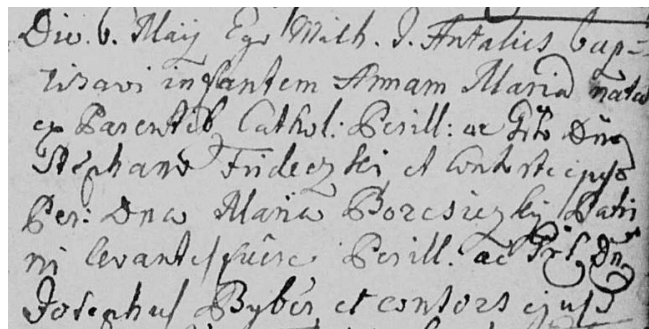 Die. 6. Maij Ego Math. J. Antalius bap=
tisavi infantem Annam Maria nata
ex Parentib Cathol: Perill: ac Gñso Dño
Stephano Frideczki et Consorte ejus
Per: Dna Maria Borcsiczky Patri
ni levantes fuere Perill. ac Gñs Dñs
Josephus Bybér et consors ejusd